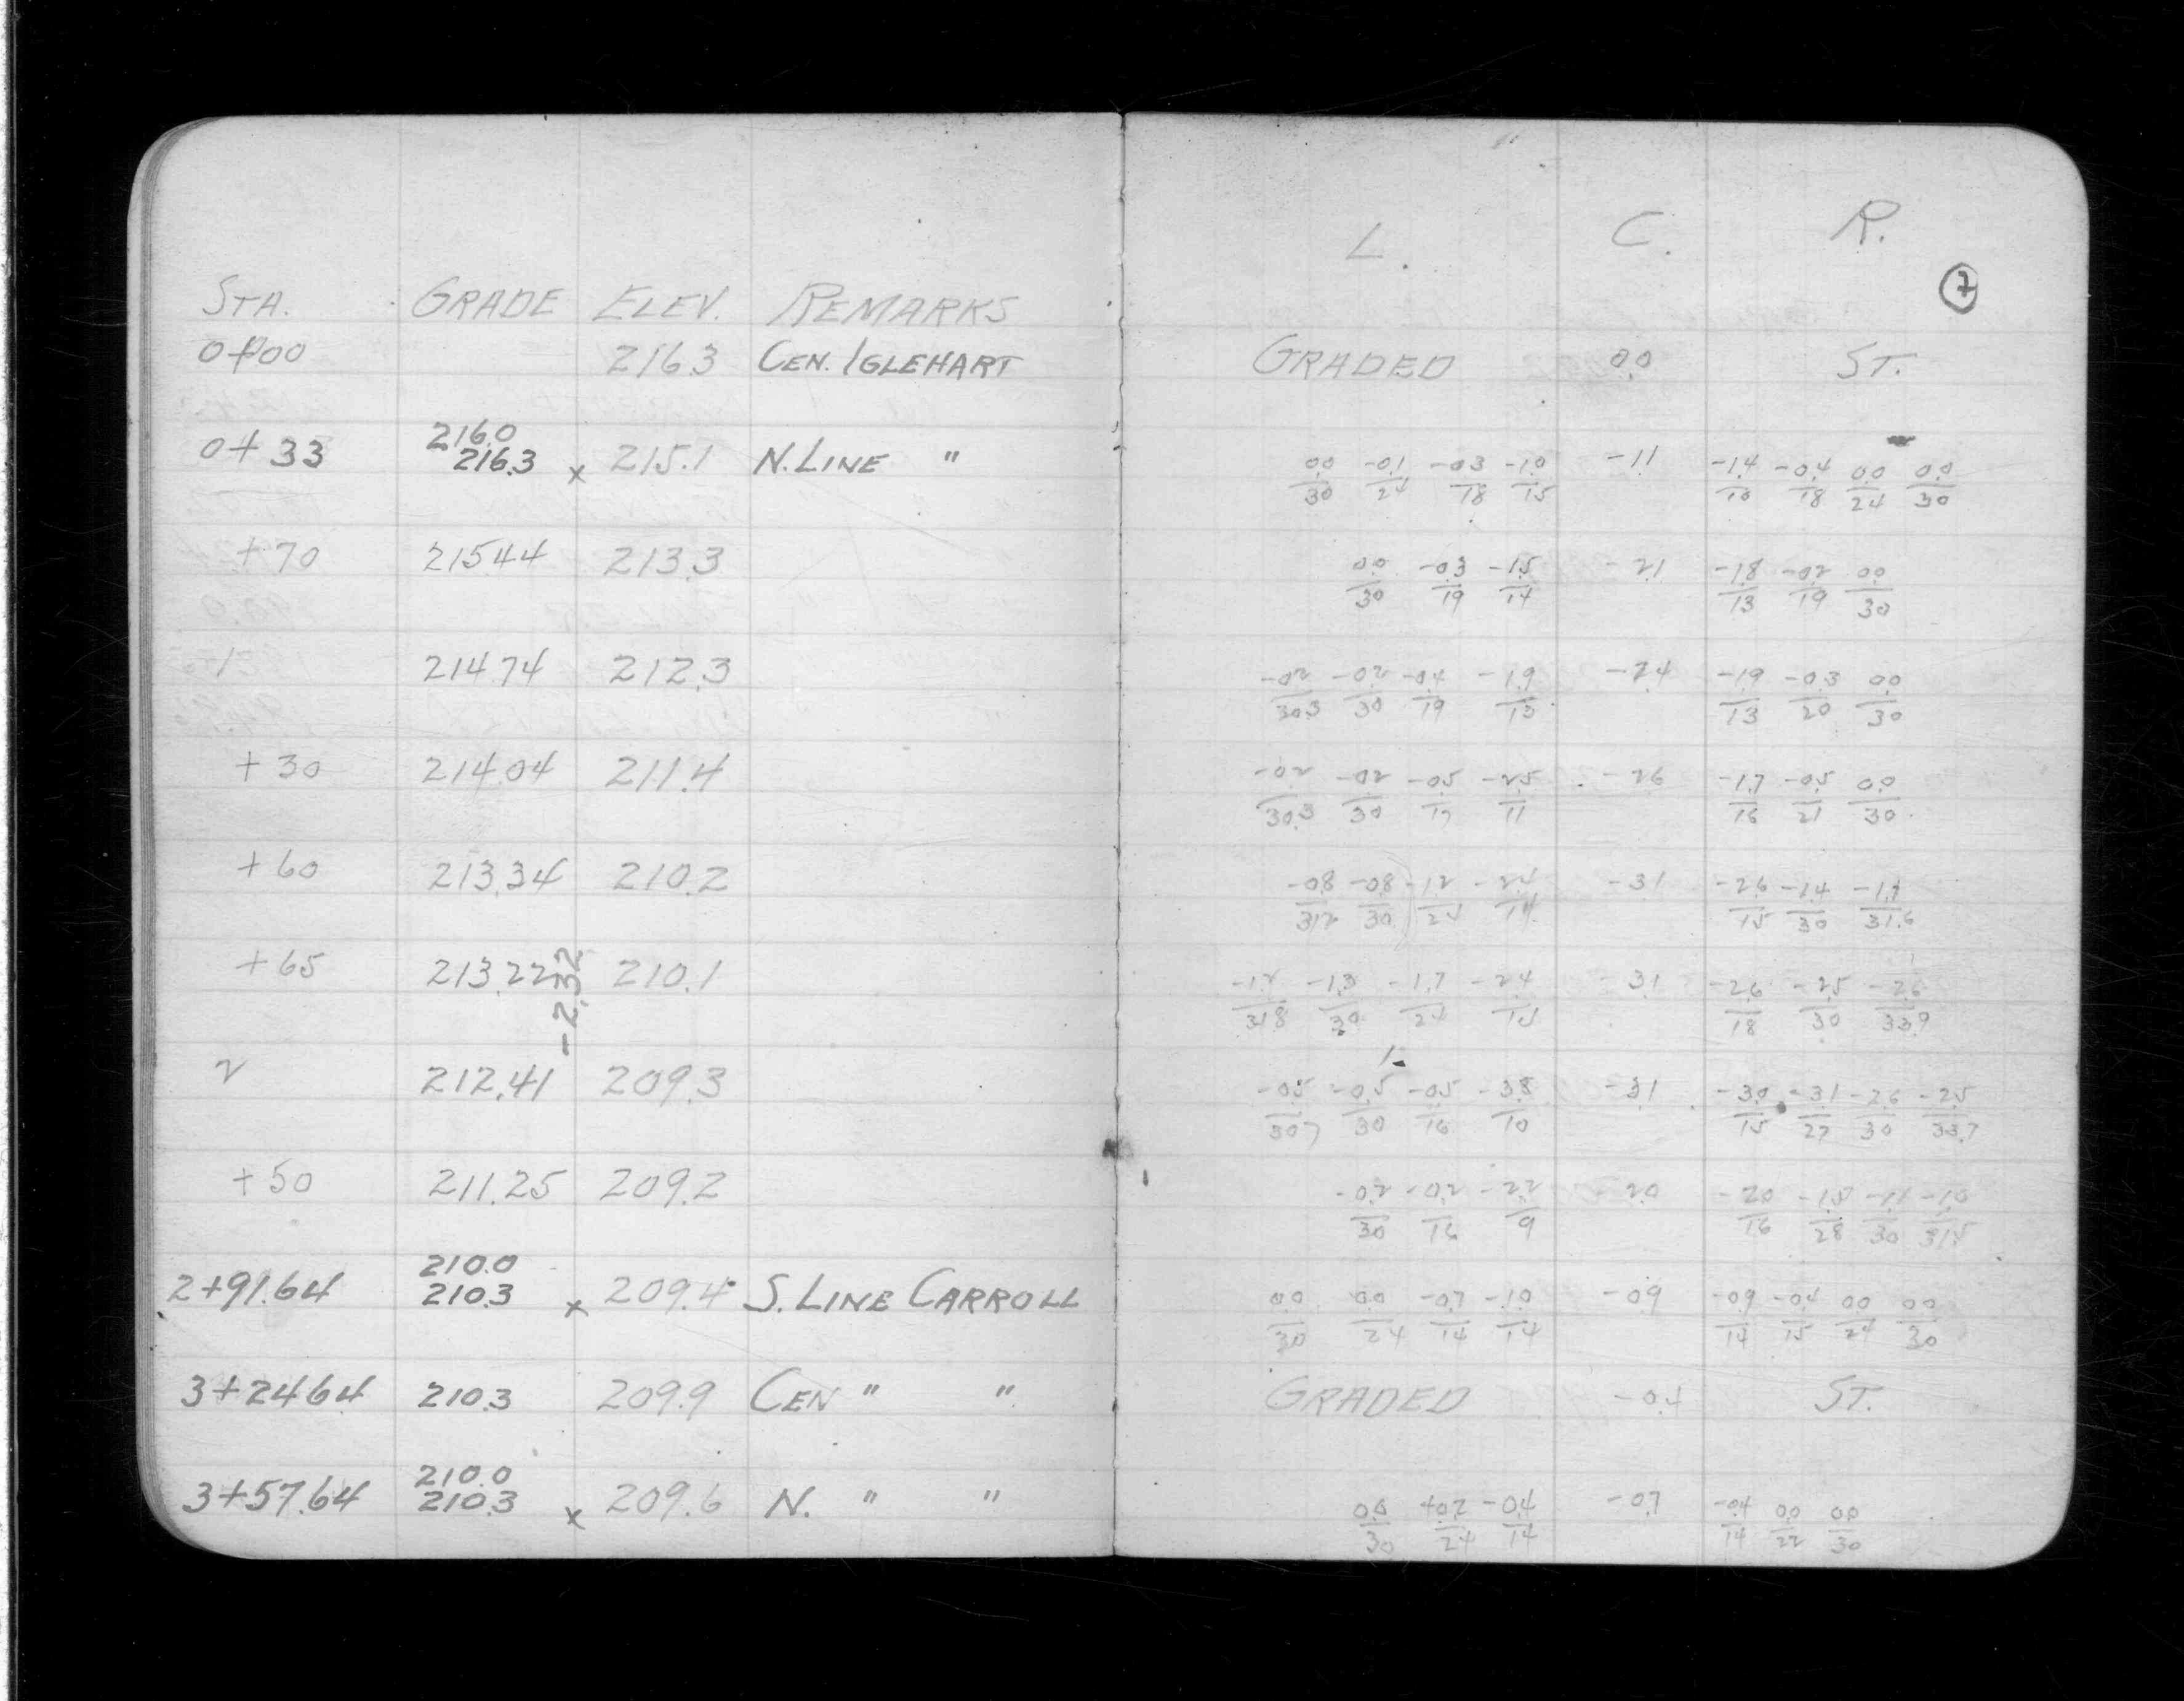 L. C. R.
7
STA. GRADE ELEV. REMARKS
0+00 216.3 CEN. IGLEHART GRADED 0.0 ST.
216.0
0+33 216.3 x 215.1 N. LINE " 0.0/30 -0.1/24 -0.3/18 -1.0/15 -1.1 -1.4/10 -0.4/18 0.0/24 0.0/30
+70 215.44 213.3 0.0/30 -0.3/19 -1.5/14 -2.1 -1.8/13 -0.2/19 0.0/30
1 214.74 212.3 -0.2/30.3 -0.2/30 -0.4/19 -1.9/13 -2.4 -1.9/13 -0.3/20 0.0/30
+30 214.04 211.4 -0.2/30.3 -0.2/30 -0.5/17 -2.5/11 -2.6 -1.7/16 -0.5/21 0.0/30
+60 213.34 210.2 -0.8/31.2 -0.8/30 -1.2/25 -2.4/14 -3.1 -2.6/15 -1.4/30 31.6
+65 213.22 210.1 31.8 -1.3/30 -1.7/24 -2.4 -3.1 -2.6/18 -2.5/30 -2.6/33.9
-2.32
2 212.41 209.3 -0.5/30.7 -0.5/30 -0.5/16 -3.8/10 -3.1 -3.0/15 -3.1/27 -2.6/30 -2.5/33.7
+50 211.25 209.2 -0.2/30 -0.2/16 -2.2/9 -2.0 -2.0/16 -1.5/28 -1.1/30 -1.0/31.5
210.0
2+91.64 210.3 x 209.4 S. LINE CARROLL 0.0/30 0.0/24 -0.7/14 -1.0/14 -0.9 -0.9/14 -0.4/15 0.0/24 0.0/30
3+24.64 210.3 209.9 CEN " " GRADED -0.4 ST.
210.0
3+57.64 210.3 x 209.6 N. " " 0.0/30 +0.2/24 -0.4/14 -0.7 -0.4/14 0.0/22 0.0/30